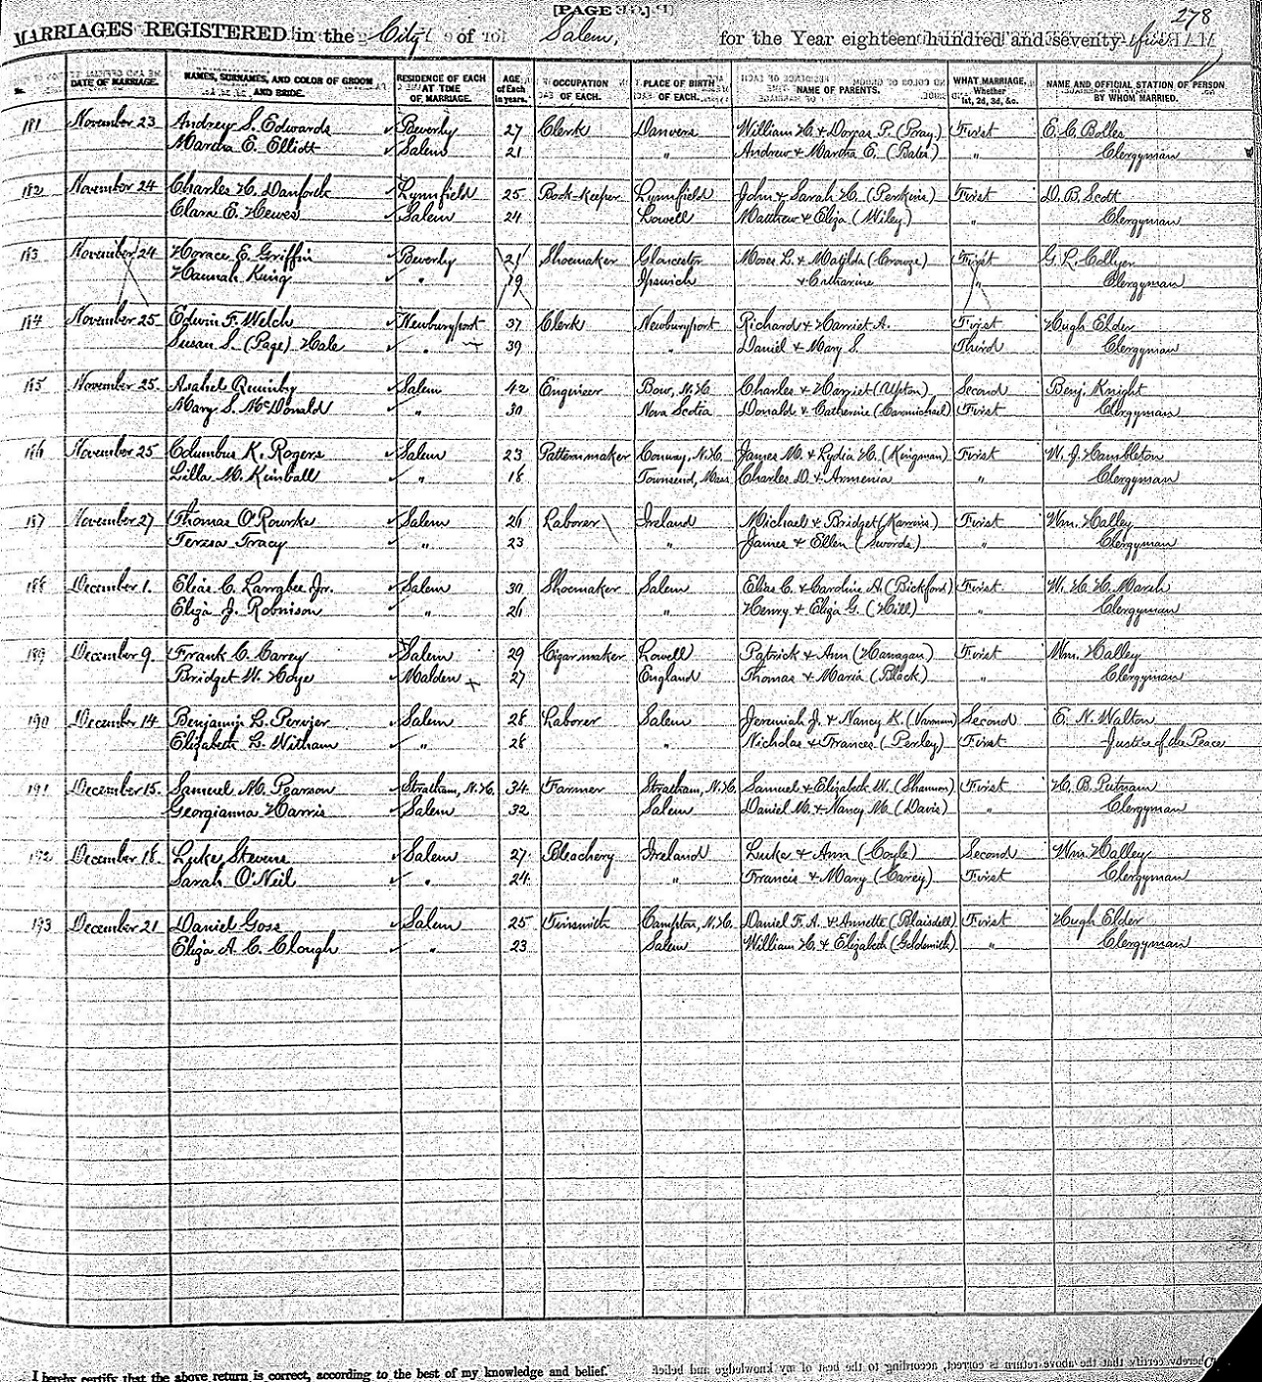 278
MARRIAGES REGISTERED in the City of Salem, for the Year eighteen hundred and seventy-five
No. DATE OF MARRIAGE. NAMES, SURNAMES, AND COLOR OF GROOM AND BRIDE. RESIDENCE OF EACH AT TIME OF MARRIAGE. AGE of Each in years. OCCUPATION OF EACH. PLACE OF BIRTH OF EACH. NAME OF PARENTS. WHAT MARRIAGE, Whether 1st, 2d, 3d, &c. NAME AND OFFICIAL STATION OF PERSON BY WHOM MARRIED.
181 November 23 Andrew S. Edwards Beverly 27 Clerk Danvers William H. & Dorcas P. (Pray) First E. C. Bolles
Martha E. Elliott Salem 21 " Andrew & Martha E. (Bates) " Clergyman
182 November 24 Charles H. Danforth Lynnfield 25 Book-keeper Lynnfield John & Sarah H. (Perkins) First D. B. Scott
Clara E. Hewes Salem 24 Lowell Matthew & Eliza (Wiley) " Clergyman
183 November 24 Horace E. Griffin Beverly 21 Shoemaker Gloucester Moses L. & Matilda First G. L. Collyer
Hannah King " 19 Ipswich & Catharine " Clergyman
184 November 25 Edwin F. Welch Newburyport 37 Clerk Newburyport Richard & Harriet A. First Hugh Elder
Susan S. (Page) Hale " 39 " Daniel & Mary S. Third Clergyman
185 November 25 Asahel Quimby Salem 42 Engineer Bow, N.H. Charles & Harriet (Upton) Second Benj. Knight
Mary S. McDonald " 30 Nova Scotia Donald & Catherine (Carmichael) First Clergyman
186 November 25 Columbus K. Rogers Salem 23 Patternmaker Conway, N.H. James M. & Lydia H. (Kingman) First W. J. Hambleton
Lilla M. Kimball " 18 Townsend, Mass. Charles D. & Armenia " Clergyman
187 November 27 Thomas O'Rourke Salem 26 Laborer Ireland Michael & Bridget First Wm. Halley
Teresa Tracy " 23 " James & Ellen (Swords) " Clergyman
188 December 1. Elias C. Larrabee Jr. Salem 30 Shoemaker Salem Elias C. & Caroline A. (Bickford) First W. H. H. Marsh
Eliza J. Robinson " 26 " Henry & Eliza G. (Hill) " Clergyman
189 December 9. Frank C. Carey Salem 29 Cigarmaker Lowell Patrick & Ann (Hanagan) First Wm. Halley
Bridget W. Hoye Malden 27 England Thomas & Maria (Black) " Clergyman
190 December 14 Benjamin L. Pervier Salem 28 Laborer Salem Jeremiah J. & Nancy K. (Varnum) Second E. N. Walton
Elizabeth L. Witham " 28 " Nicholas & Frances (Penley) First Justice of the Peace
191 December 15. Samuel M. Pearson Stratham, N.H. 34 Farmer Stratham, N.H. Samuel & Elizabeth W. (Shannon) First H. B. Putnam
Georgianna Harris Salem 32 Salem Daniel M. & Nancy M. (Davis) " Clergyman
192 December 18. Luke Stevens Salem 27 Bleachery Ireland Luke & Ann (Coyle) Second Wm. Halley
Sarah O'Neil " 24 " Francis & Mary (Carey) First Clergyman
193 December 21 Daniel Goss Salem 25 Tinsmith Campton, N.H. Daniel F. A. & Annette (Blaisdell) First Hugh Elder
Eliza A. C. Clough " 23 Salem William H. & Elizabeth (Goldsmith) " Clergyman
I hereby certify that the above return is correct, according to the best of my knowledge and belief.